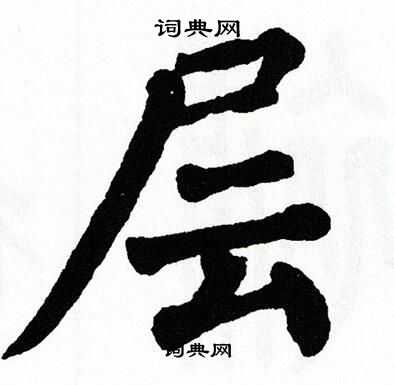 词典网
层
词典网